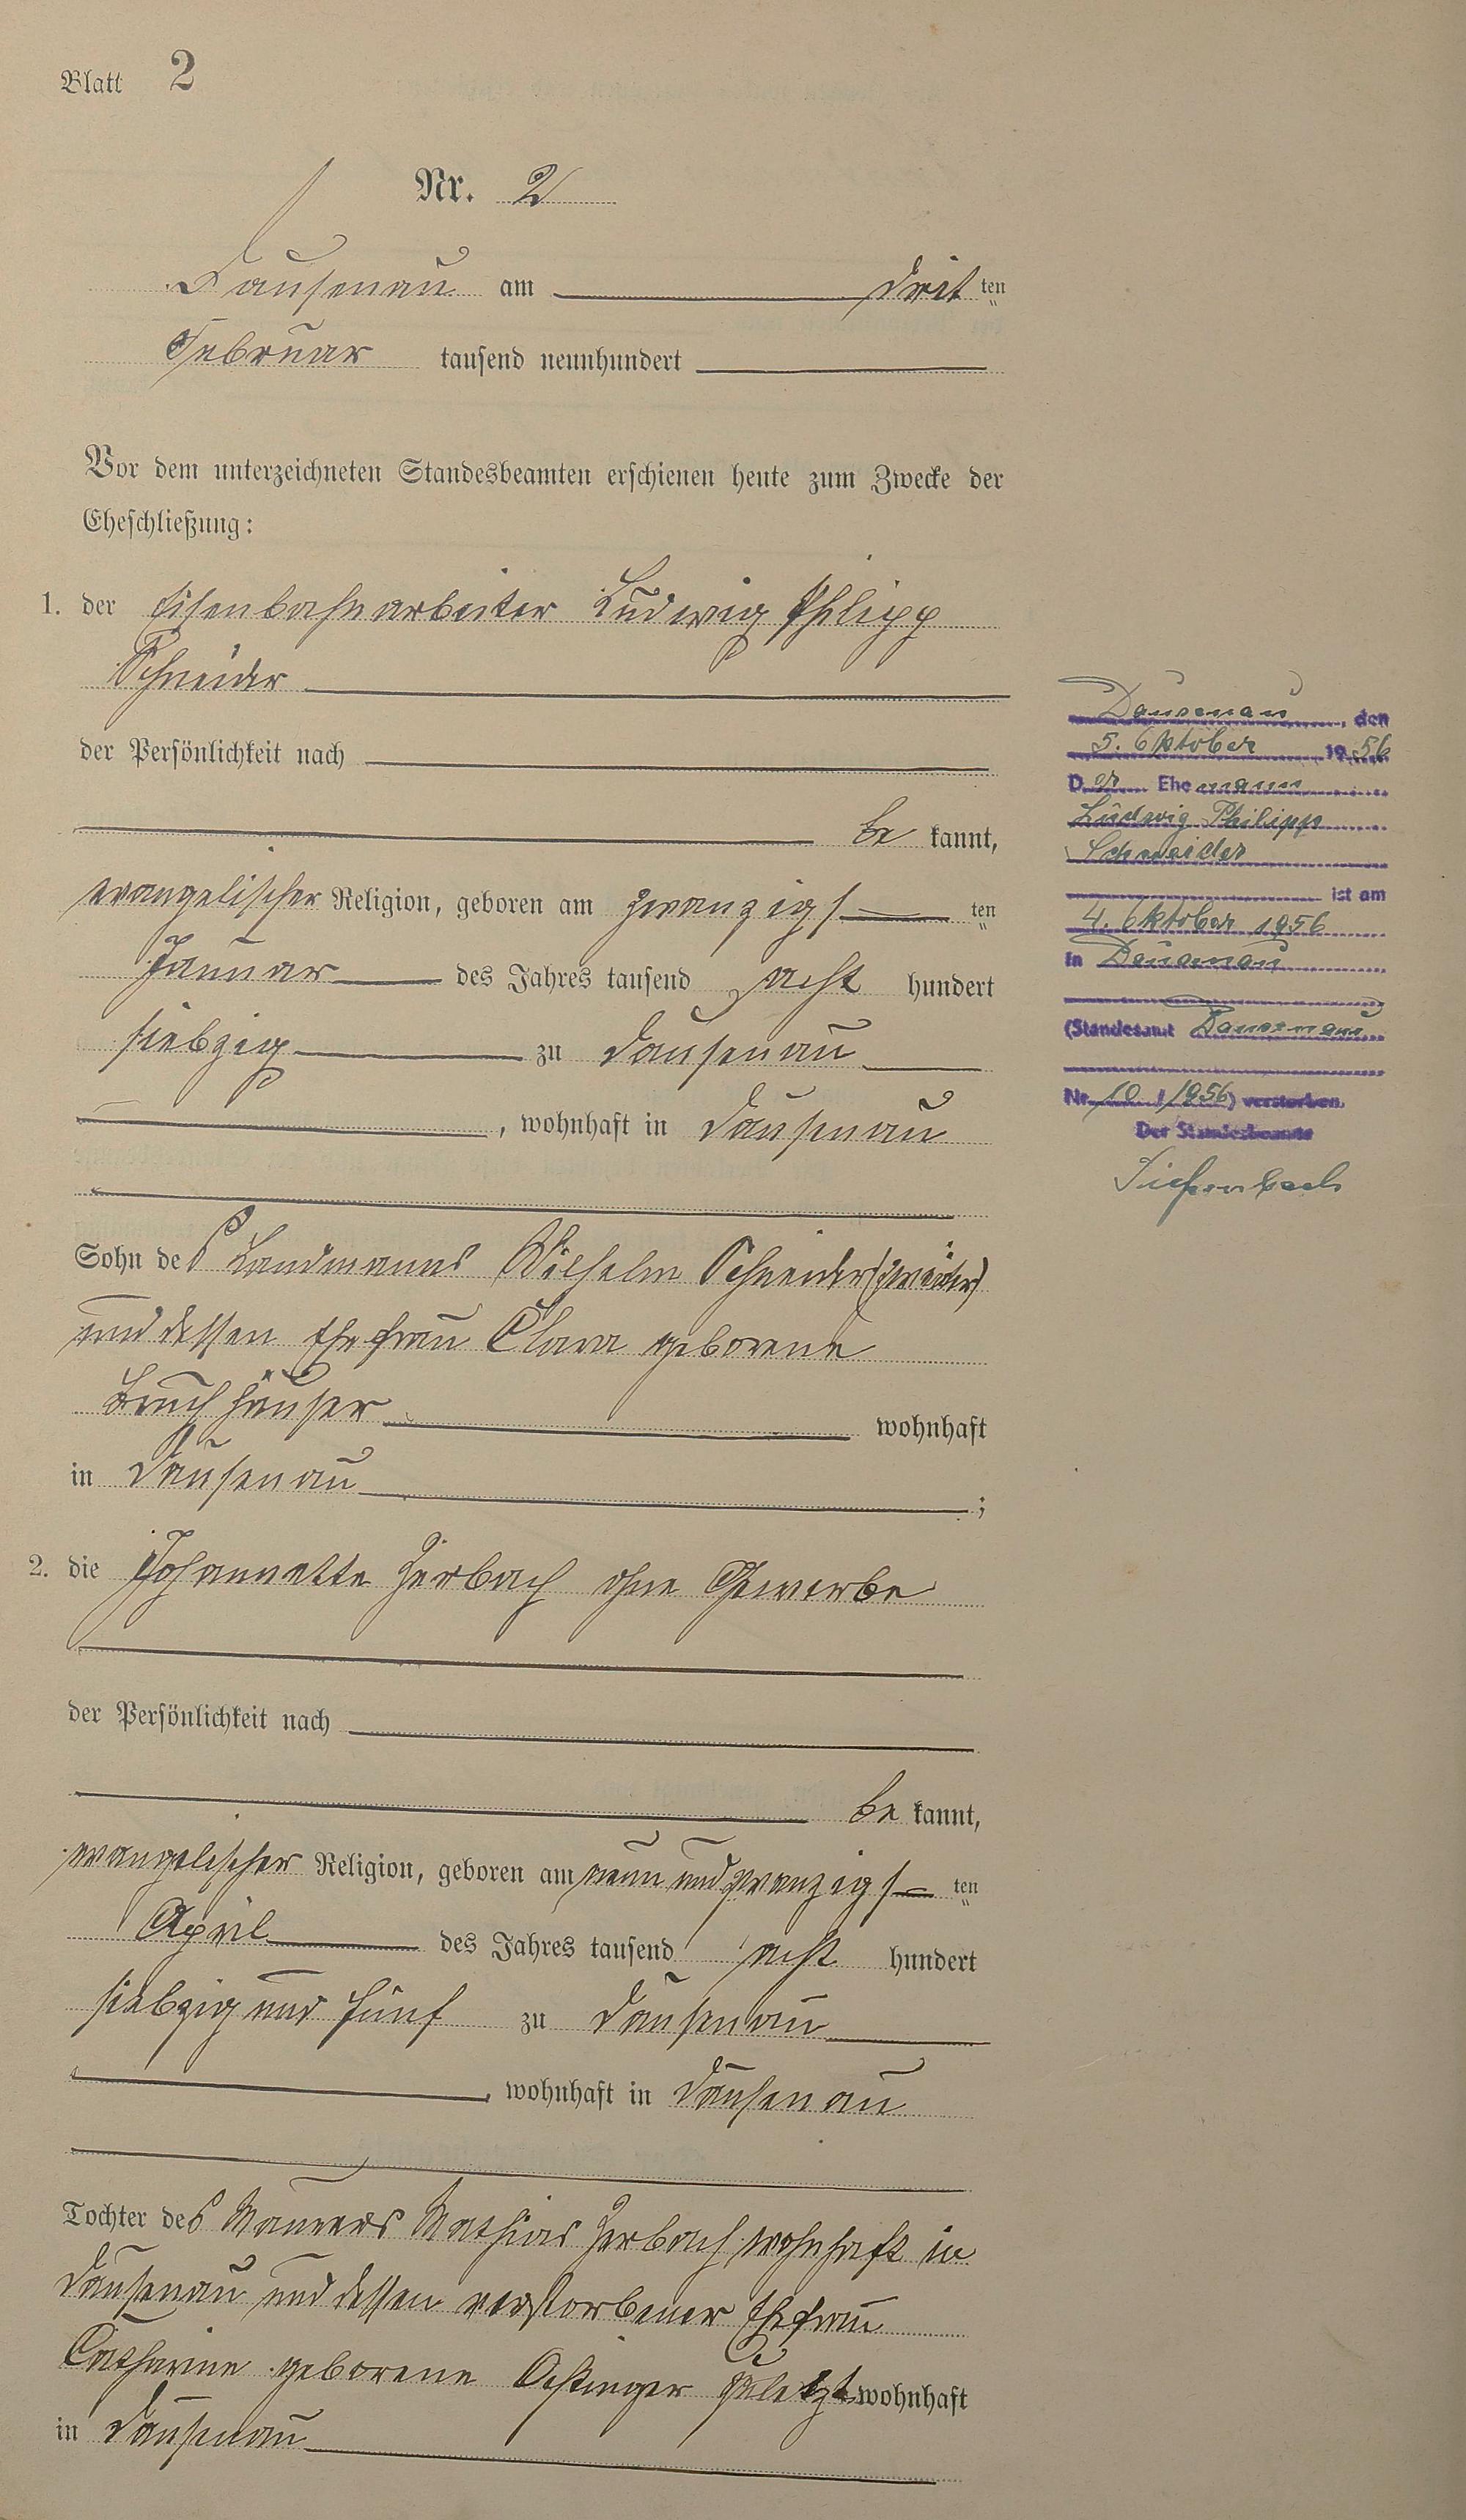 Blatt 2
Nr. 2
Dausenau am dritten
Februar tausend neunhundert
Vor dem unterzeichneten Standesbeamten erschienen heute zum Zwecke der
Eheschließung:
1. der Eisenbahnarbeiter Ludwig Philipp
Schneider
der Persönlichkeit nach
be kannt,
evangelischer Religion, geboren am zwanzigsten
Januar des Jahres tausend acht hundert
siebzig zu Dausenau
, wohnhaft in Dausenau
Sohn des Landmanns Wilhelm Schneider (zweiter)
und dessen Ehefrau Clara geborene
Bruchhäuser wohnhaft
in Dausenau ;
2. die Johannette Zerbach ohne Gewerbe
der Persönlichkeit nach
be kannt,
evangelischer Religion, geboren am neun und zwanzigsten
April des Jahres tausend acht hundert
siebzig und fünf zu Dausenau
, wohnhaft in Dausenau
Tochter des Maurers Mathias Zerbach wohnhaft in
Dausenau und dessen verstorbener Ehefrau
Catharine geborene zuletzt wohnhaft
in Dausenau
Dausenau, den
5. Oktober 1956
Der Ehemann
Ludwig Philipp
Schneider
ist am
4. Oktober 1956
in Dausenau
(Standesamt Dausenau
Nr. 10 / 1956) verstorben.
Der Standesbeamte